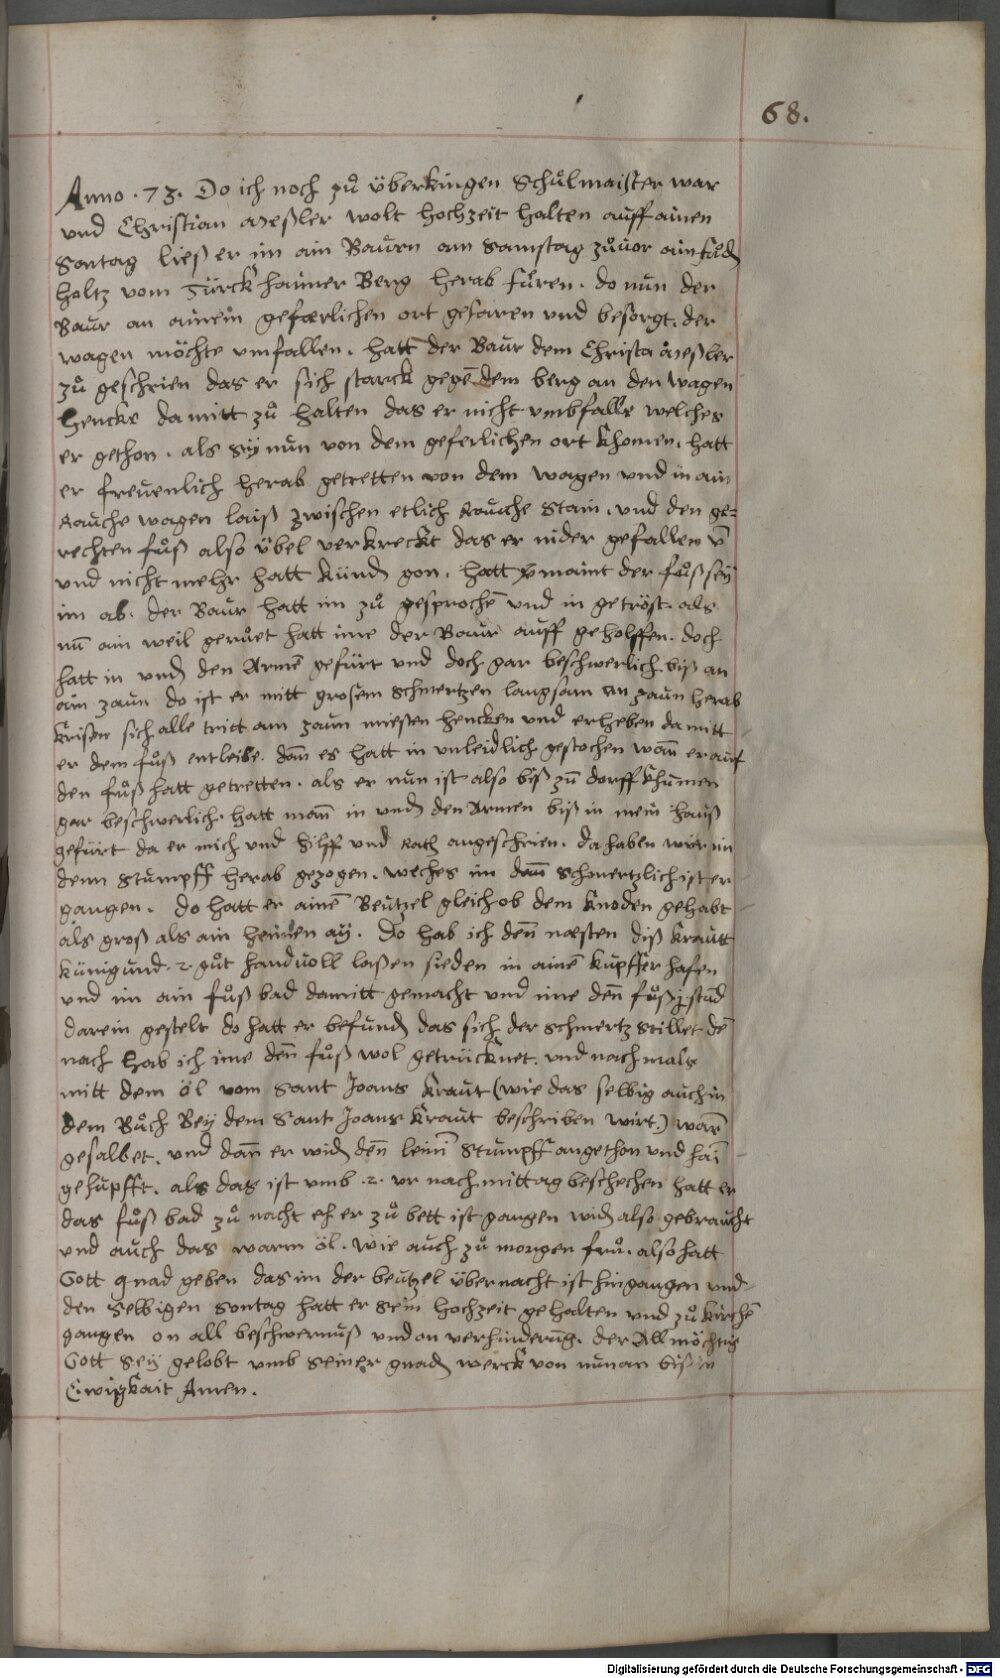 68.
Anno . 73. Do ich noch zů überkingen Schůlmaister war
vnd Christian Meßler wolt hochzeit halten auff ainen
Sontag ließ er im ain Baurn am Samstag zůuor ain fůd
holtz vom Türckhaimer Berg herab füren. do nun der
Baur an ainem gefærlichen ort gefaren vnd besorgt. der
wagen möchte vmfallen. hatt der Baur dem Christa Meßler
zů geschrien das er sich starck gegē dem berg an den wagen
hencke damitt zů halten das er nicht vmbfalle welches
er gethon. als sy nun von dem geferlichen ort khomen. hatt
er freuenlich herab getretten von dem wagen vnd in ain
Rauche wagen laiß zwischen etlich Rauche Stain. vnd den ge=
rechten fůß also übel verkreckt das er nider gefallen v̄
vnd nicht mehr hatt künd gon. hatt gmaint der fůß sey
im ab. der Baur hatt im zů gesprochē vnd in getröst. als
nū ain weil gerůet hatt ime der Baur auff geholffen. doch
hatt in vnd den Armē gefürt vnd doch gar beschwerlich biß an
ain zaun do ist er mitt grosem schmertzen langsam am zaun herab
krisen sich alle tritt am zaun miessen hencken vnd erheben damitt
er dem fůß entleibe. dan̄ es hatt in vnleidlich gestochen wan̄ er auf
den fůß hatt getretten. als er nun ist also biß zū dorff khumen
gar beschwerlich. hatt man̄ in vnd den Armen biß in mein hauß
gefürt da er mich vnd hilff vnd Rath angeschrien. da haben wir im
denn Stumpff herab gezogen. welches im dan̄ schmertzlich ist er
gangen. do hatt er ainē Beutzel gleich ob dem Knoden gehabt
als groß als ain hennen ay. Do hab ich den̄ næsten diß krautt
künigund .2. gůt handuoll lassen sieden in ainē kupffer hafen
vnd im ain fůß bad damitt gemacht vnd ime den̄ fůß j stūd
darein gestelt do hatt er befunden das sich der schmertz stillet dē
nach hab ich ime den̄ fůß wol getrücknet. vnd nachmals
mitt dem öl vom Sant Joans kraut (wie das selbig auch in
dem Bůch Bey dem Sant Joans kraut beschriben wirt.) warm
gesalbet. vnd dan̄ er wid den̄ leinī Stumpff angethon vnd hai
gehupfft. als das ist vmb .2. vr nach mittag beschechen hatt er
das fůß bad zů nacht eh er zů bett ist gangen wid also gebraucht
vnd auch das warm öl. wie auch zů morgen frů. also hatt
Gott gnad geben das im der beutzel über nacht ist hingangen vnd
den selbigen Sontag hatt er sein hochzeit gehalten vnd zů kirchē
gangen on all beschwernuß vnd on verhinderūg. der Allmöchtig
Gott sey gelobt vmb seiner gnaden werck von nun an biß in
Ewigkait Amen.
Digitalisierung gefördert durch die Deutsche Forschungsgemeinschaft - DFG